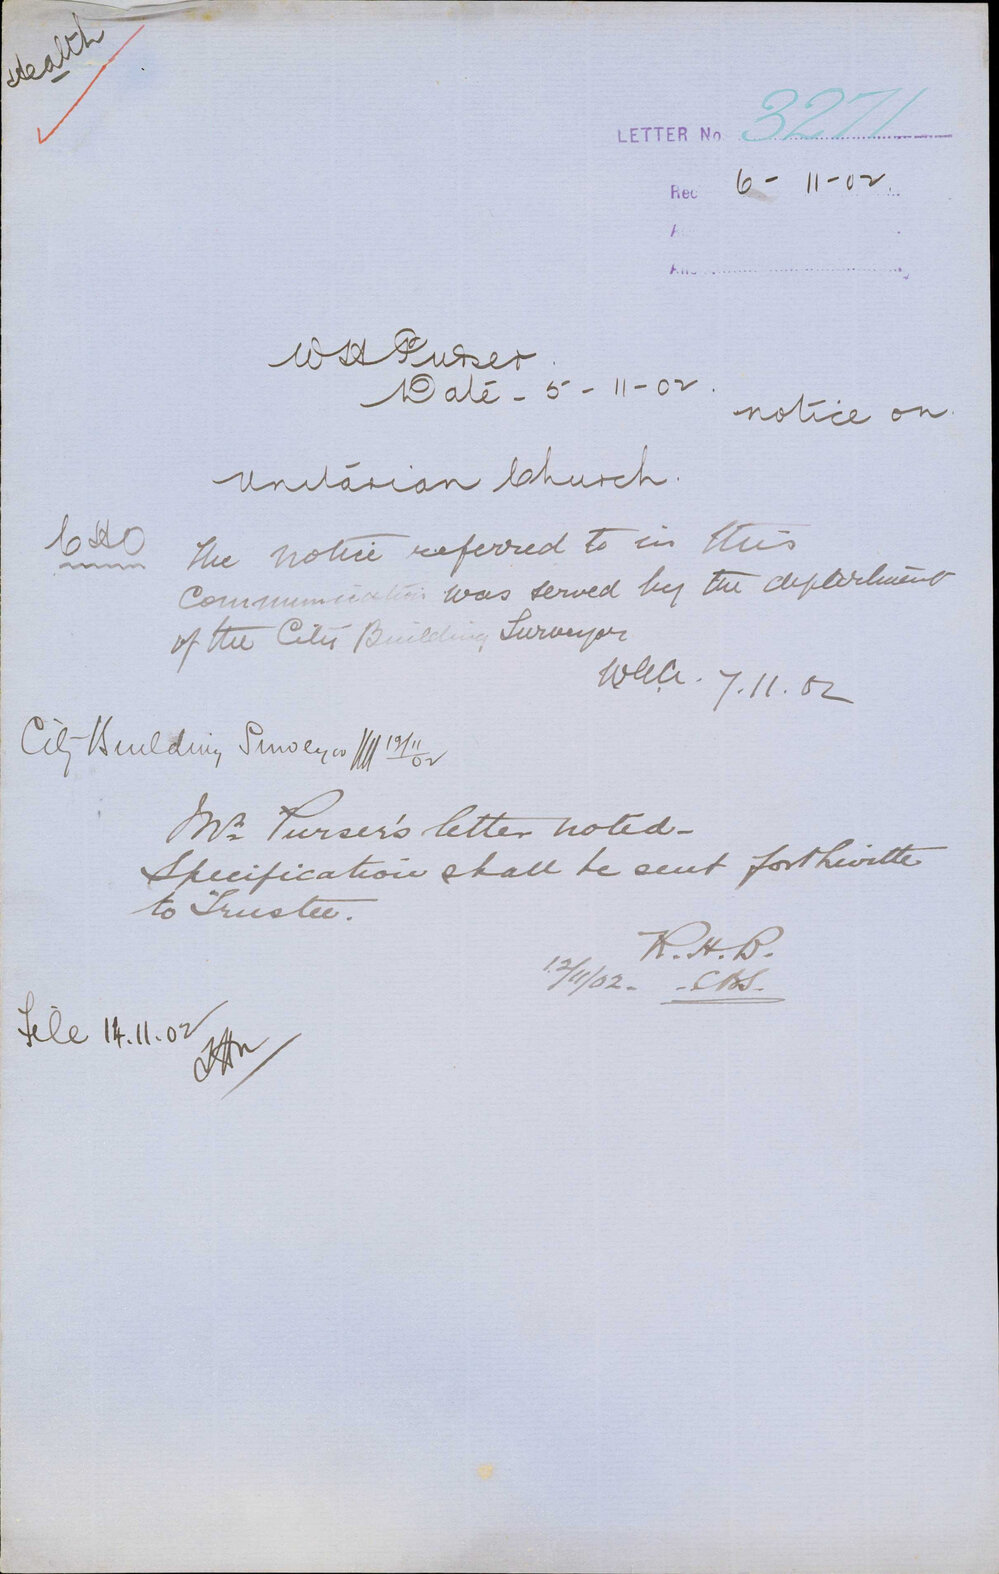 Health
LETTER No 3271
Rec 6-11-02.
W H Purser.
Date - 5-11-02.
notice on
Unitarian Church.
CHO
The notice referred to in this
Communication was served by the department
of the City Building Surveyor
7.11.02
City Building Surveyor 12/11/02
Mr. Purser's letter noted -
Specification shall be sent forthwith
to Trustee.
R.H.B.
12/11/02. C.B.S.
File 14.11.02